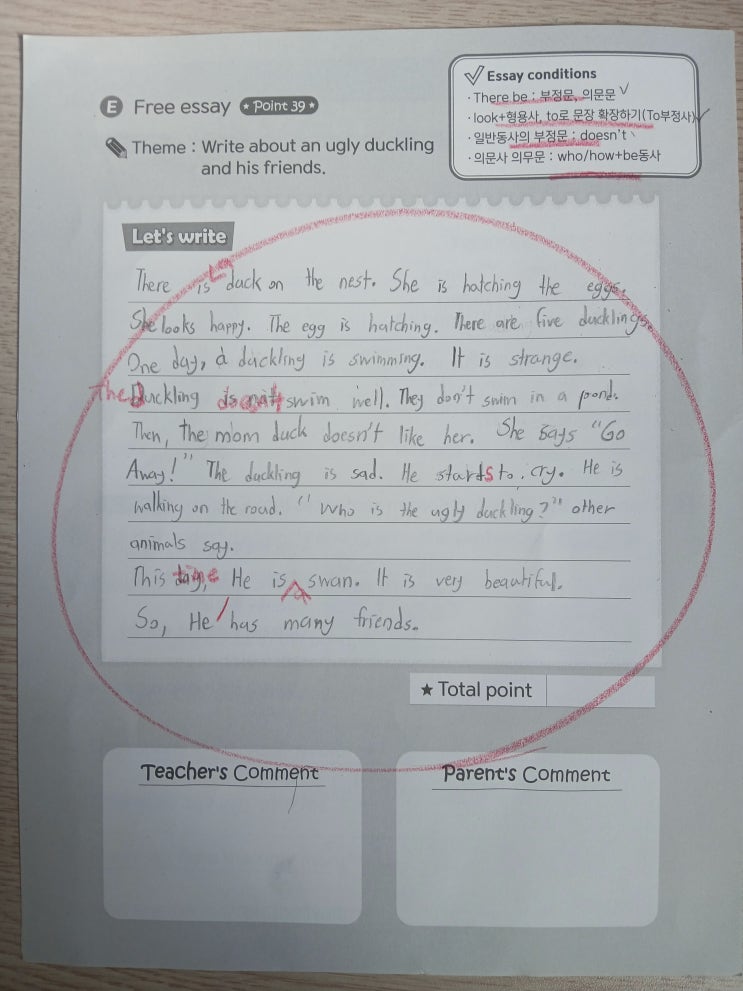 E Free essay ★Point 39★
Theme : Write about an ugly duckling
and his friends.
Essay conditions
· There be : 부정문, 의문문
· look+형용사, to로 문장 확장하기(To부정사)
· 일반동사의 부정문 : doesn't
· 의문사 의무문 : who/how+be동사
Let's write
There is a duck on the nest. She is hatching the eggs.
She looks happy. The egg is hatching. There are five ducklings.
One day, a duckling is swimming. It is strange.
The Duckling doesn't swim well. They don't swim in a pond.
Then, the mom duck doesn't like her. She says "Go
Away!" The duckling is sad. He starts to cry. He is
walking on the road. "Who is the ugly duckling?" other
animals say.
This time He is a swan. It is very beautiful.
So, He has many friends.
★ Total point
Teacher's Comment
Parent's Comment